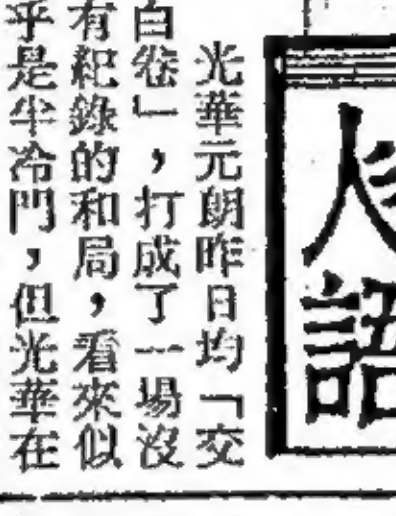 人語
光華元朗昨日均「交
白卷」，打成了一場沒
有紀錄的和局，看來似
乎是半冷門，但光華在